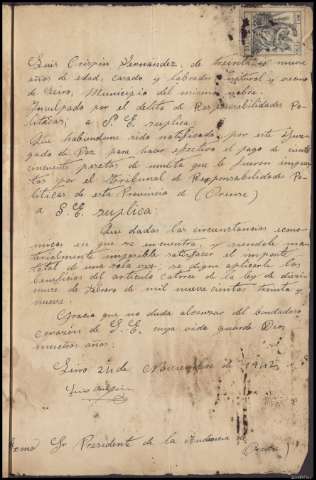 Luis Crispin Fernandez, de treinta y nueve
años de edad, casado y labrador natural y vecino
de Leiro, Municipio del mismo nombre.
Inculpado por el delito de Responsabilidades Po-
liticas, a S. E. suplica:
Que habiendome sido notificado, por este Juz-
gado de Paz, para hacer efectivo el pago de ciento
cincuenta pesetas de multa que le fueron impues-
tas por el Tribunal de Responsabilidades Po-
liticas de esta Provincia de (Orense)
a S. E. suplica
Que dadas las circunstancias econo-
micas en que se encuentra, y siendole ma-
terialmente imposible satisfacer el importe
total de una sola vez, se digne aplicarle los
beneficios del articulo catorce de la ley de diez y
nueve de Febrero de mil nueve cientos treinta y
nueve.
Gracia que no duda alcanzar del bondadoso
corazón de S. E. cuya vida guarde Dios
muchos años.
Leiro 24 de Noviembre de 1942
Luis Crispin
Exmo Sr Presidente de la Audiencia de
Orense)